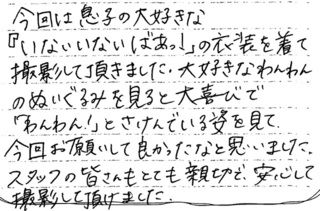 今回は息子の大好きな
『いないいないばあっ!』の衣装を着て
撮影して頂きました。大好きなわんわん
のぬいぐるみを見ると大喜びで
「わんわん!」とさけんでいる姿を見て、
今回お願いして良かったなと思いました。
スタッフの皆さんもとても親切で、安心して
撮影して頂けました。